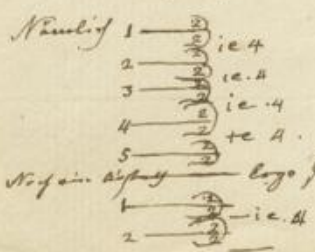 Nämlich 1 2
2 ie 4
2
2 2 ie. 4
3 2
2 ie . 4
4 2
2 ie 4 .
5 2
2
Noch ein logo
1 2
2 ie. 4
2 2
2